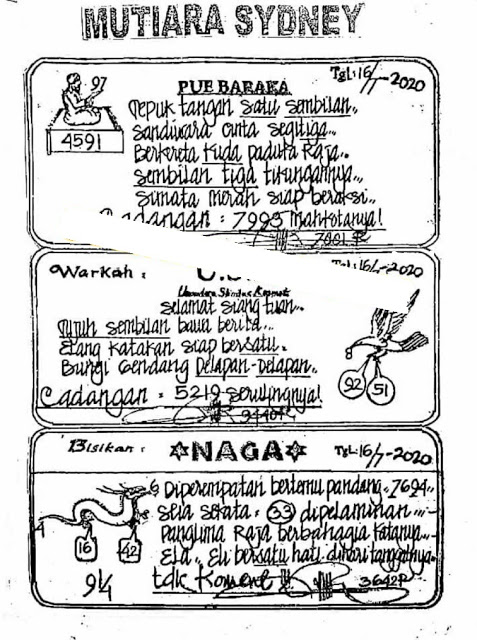 MUTIARA SYDNEY
97
4591
PUE BARAKA
Tgl: 16/7-2020
Tepuk tangan satu sembilan..
Sandiwara cinta segitiga..
Berkereta kuda paduka Raja..
Sembilan tiga tikungannya..
Simata merah siap beraksi..
Cadangan : 7993 mahkotanya!
Warkah :
16/7-2020
selamat siang tuan..
Tujuh sembilan bawa berita..
Elang katakan siap bersatu..
Bunyi Gendang Delapan-Delapan..
Cadangan : 5219 serulingnya!
92
51
Bisikan :
NAGA
Tgl: 16/7-2020
Diperempatan bertemu pandang..7694..
seia sekata : 33 dipelaminan
panglima Raja berbahagia katanya..
Ela.. Eli bersatu hati
16
42
9¼
tdk Koment
3642P